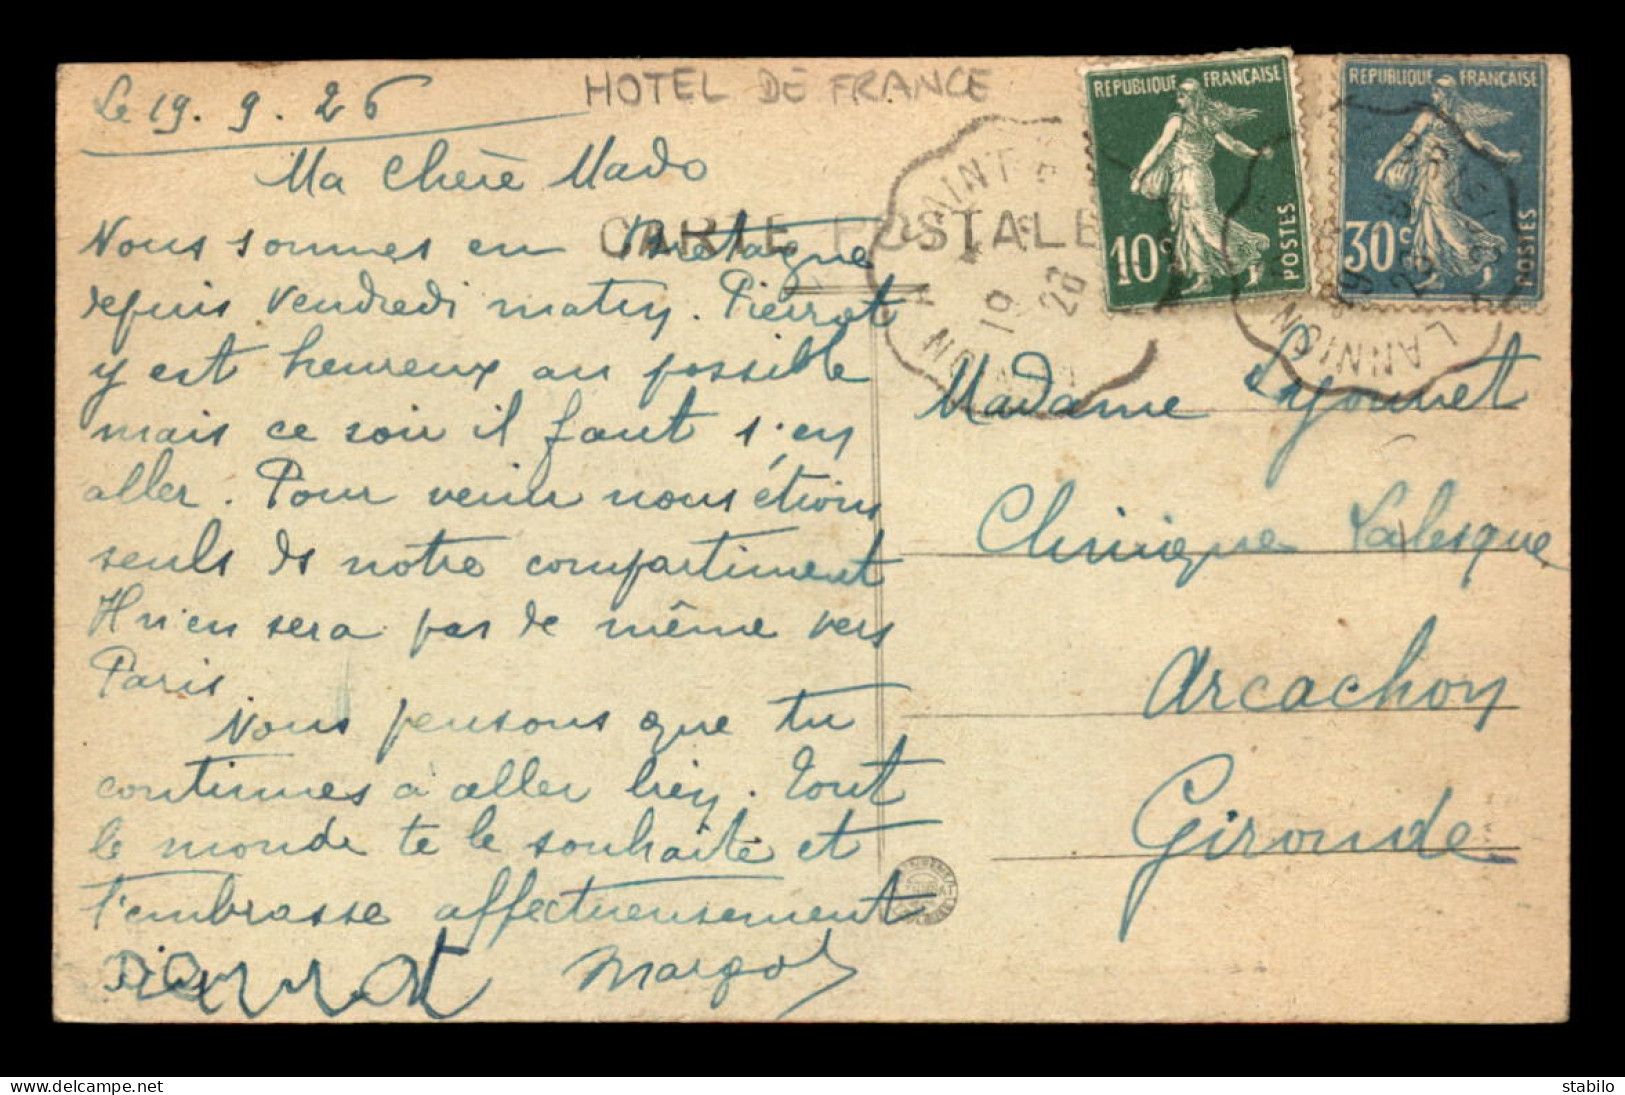 HOTEL DE FRANCE
Le 19.9.26
Ma Chère Mado
CARTE POSTALE
Nous sommes en Bretagne
depuis Vendredi matin. Pierrot
y est heureux au possible
mais ce soir il faut s'en
aller. Pour venir nous étions
seuls ds notre compartiment
Il n'en sera pas de même vers
Paris
Nous pensons que tu
continues à aller bien. Tout
le monde te le souhaite et
t'embrasse affectueusement
Pierrot Margot
REPUBLIQUE FRANÇAISE
10c
POSTES
REPUBLIQUE FRANÇAISE
30c
POSTES
LANNION
19
Madame Lyonnet
Clinique Lalesque
Arcachon
Gironde
delcampe.net
stabilo